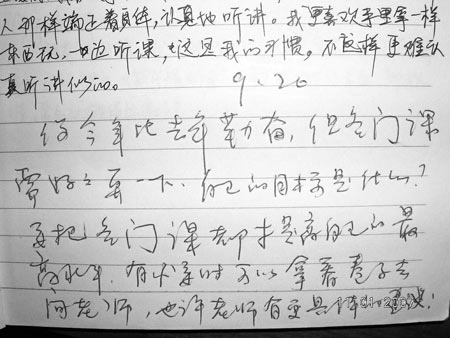 人那样端正着身体，认真地听讲。我更喜欢手里拿一样
东西玩，一边听课，这是我的习惯。不这样更难认
真听讲似的。
9.20
你今年比去年勤奋，但各门课
需好之要一下、自己的目标是什么？
要把各门课都提高自己的最
高水平．有必要时可以拿着卷子去
问老师，也许老师有更具体的